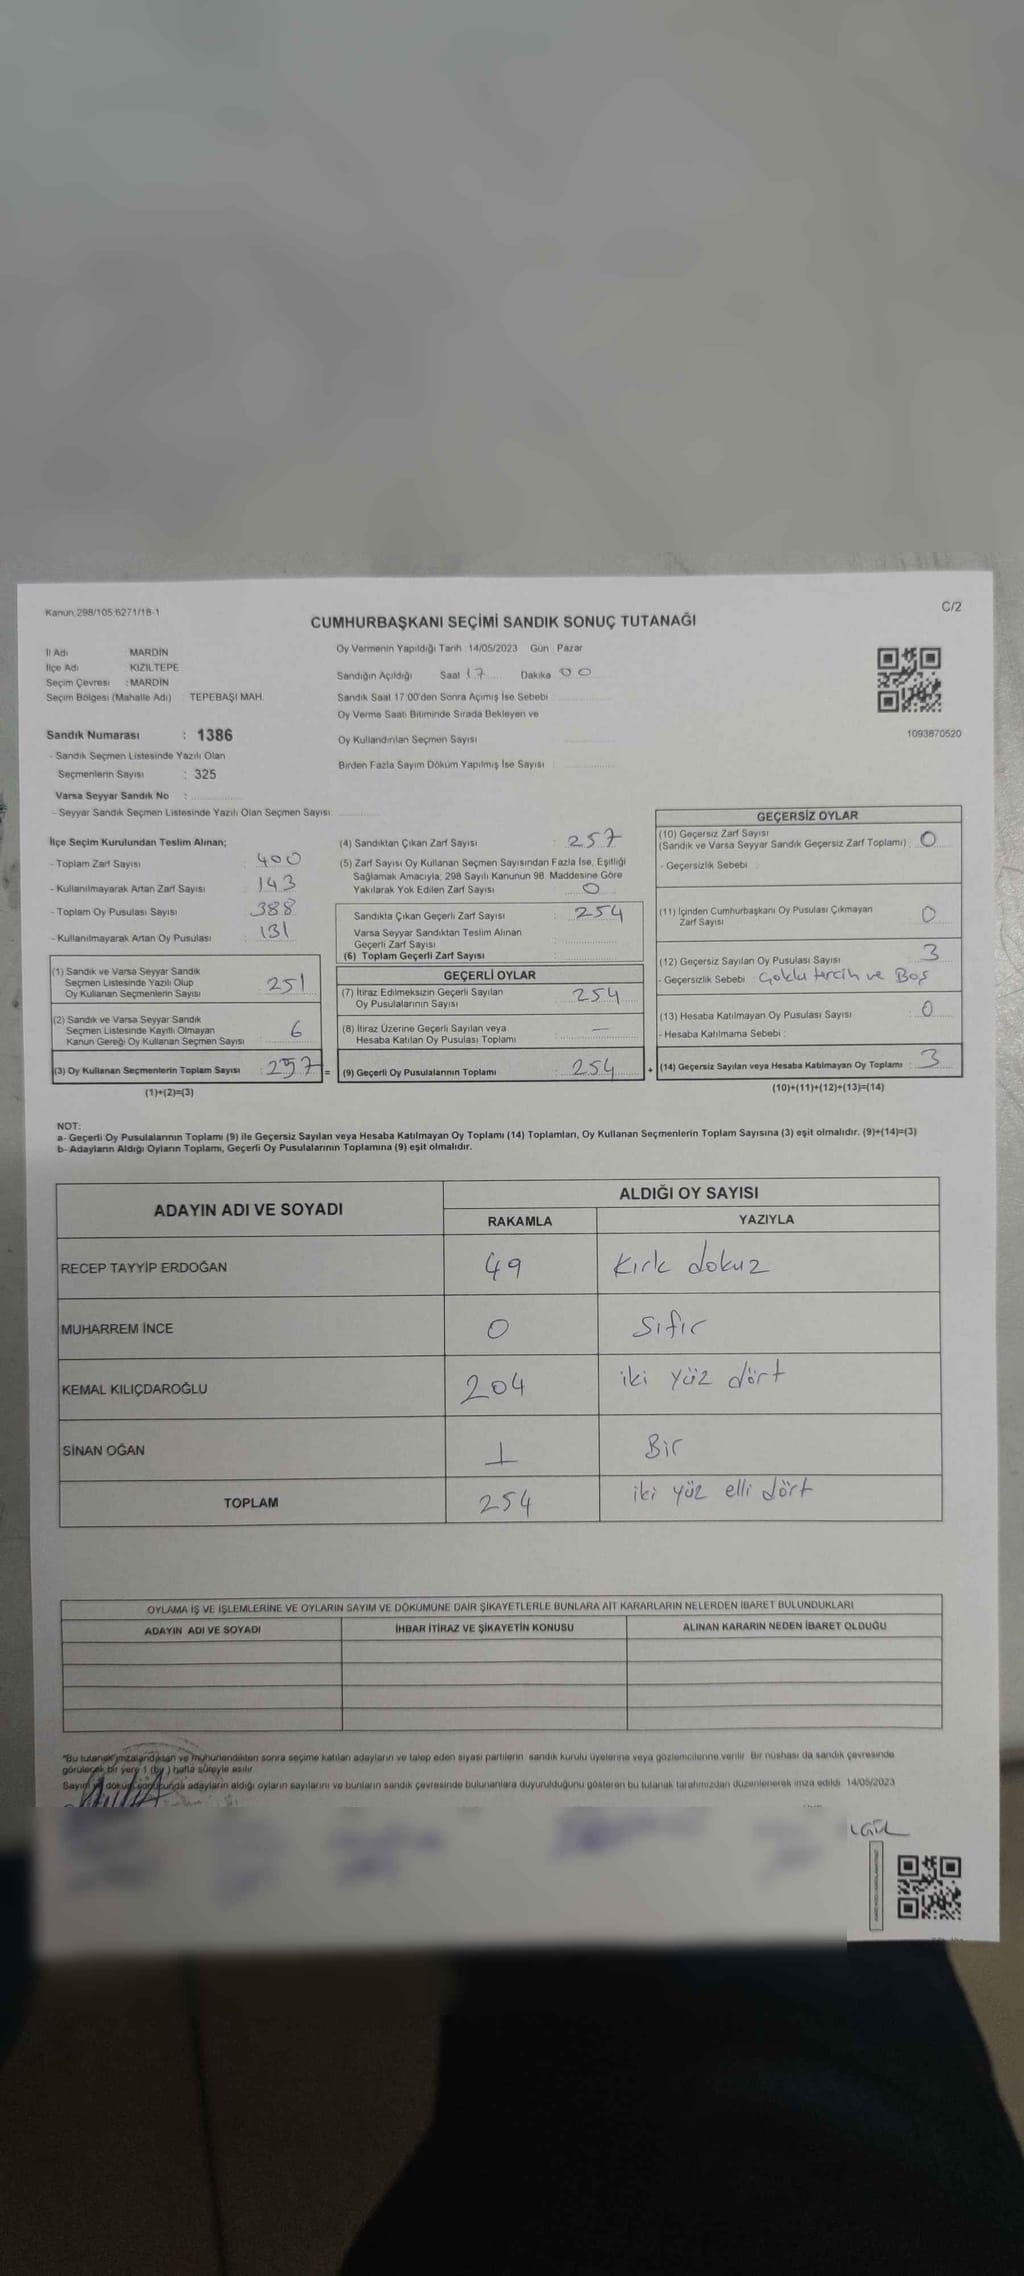 Kanun:298/105;6271/18-1
C/2
CUMHURBAŞKANI SEÇİMİ SANDIK SONUÇ TUTANAĞI
İl Adı : MARDİN
İlçe Adı : KIZILTEPE
Seçim Çevresi : MARDİN
Seçim Bölgesi (Mahalle Adı) : TEPEBAŞI MAH.
Sandık Numarası : 1386
- Sandık Seçmen Listesinde Yazılı Olan
Seçmenlerin Sayısı : 325
Varsa Seyyar Sandık No :
- Seyyar Sandık Seçmen Listesinde Yazılı Olan Seçmen Sayısı:
Oy Vermenin Yapıldığı Tarih : 14/05/2023 Gün : Pazar
Sandığın Açıldığı Saat 17 Dakika 00
Sandık Saat 17:00'den Sonra Açımış İse Sebebi
Oy Verme Saati Bitiminde Sırada Bekleyen ve
Oy Kullandırılan Seçmen Sayısı
Birden Fazla Sayım Döküm Yapılmış İse Sayısı :
1093870520
İlçe Seçim Kurulundan Teslim Alınan;
- Toplam Zarf Sayısı : 400
- Kullanılmayarak Artan Zarf Sayısı : 143
- Toplam Oy Pusulası Sayısı : 388
- Kullanılmayarak Artan Oy Pusulası : 131
(1) Sandık ve Varsa Seyyar Sandık
Seçmen Listesinde Yazılı Olup
Oy Kullanan Seçmenlerin Sayısı : 251
(2) Sandık ve Varsa Seyyar Sandık
Seçmen Listesinde Kayıtlı Olmayan
Kanun Gereği Oy Kullanan Seçmen Sayısı : 6
(3) Oy Kullanan Seçmenlerin Toplam Sayısı : 257 =
(1)+(2)=(3)
(4) Sandıktan Çıkan Zarf Sayısı : 257
(5) Zarf Sayısı Oy Kullanan Seçmen Sayısından Fazla İse, Eşitliği
Sağlamak Amacıyla; 298 Sayılı Kanunun 98. Maddesine Göre
Yakılarak Yok Edilen Zarf Sayısı : 0
Sandıkta Çıkan Geçerli Zarf Sayısı : 254
Varsa Seyyar Sandıktan Teslim Alınan
Geçerli Zarf Sayısı
(6) Toplam Geçerli Zarf Sayısı
GEÇERLİ OYLAR
(7) İtiraz Edilmeksizin Geçerli Sayılan
Oy Pusulalarının Sayısı : 254
(8) İtiraz Üzerine Geçerli Sayılan veya
Hesaba Katılan Oy Pusulası Toplamı : —
(9) Geçerli Oy Pusulalarının Toplamı : 254 +
GEÇERSİZ OYLAR
(10) Geçersiz Zarf Sayısı
(Sandık ve Varsa Seyyar Sandık Geçersiz Zarf Toplamı) : 0
- Geçersizlik Sebebi :
(11) İçinden Cumhurbaşkanı Oy Pusulası Çıkmayan
Zarf Sayısı : 0
(12) Geçersiz Sayılan Oy Pusulası Sayısı : 3
- Geçersizlik Sebebi : Çoklu tercih ve Boş
(13) Hesaba Katılmayan Oy Pusulası Sayısı : 0
- Hesaba Katılmama Sebebi :
(14) Geçersiz Sayılan veya Hesaba Katılmayan Oy Toplamı : 3
(10)+(11)+(12)+(13)=(14)
NOT:
a- Geçerli Oy Pusulalarının Toplamı (9) ile Geçersiz Sayılan veya Hesaba Katılmayan Oy Toplamı (14) Toplamları, Oy Kullanan Seçmenlerin Toplam Sayısına (3) eşit olmalıdır. (9)+(14)=(3)
b- Adayların Aldığı Oyların Toplamı, Geçerli Oy Pusulalarının Toplamına (9) eşit olmalıdır.
ADAYIN ADI VE SOYADI
ALDIĞI OY SAYISI
RAKAMLA YAZIYLA
RECEP TAYYİP ERDOĞAN 49 Kırk dokuz
MUHARREM İNCE 0 Sıfır
KEMAL KILIÇDAROĞLU 204 iki yüz dört
SİNAN OĞAN 1 Bir
TOPLAM 254 iki yüz elli dört
OYLAMA İŞ VE İŞLEMLERİNE VE OYLARIN SAYIM VE DÖKÜMÜNE DAİR ŞİKAYETLERLE BUNLARA AİT KARARLARIN NELERDEN İBARET BULUNDUKLARI
ADAYIN ADI VE SOYADI İHBAR İTİRAZ VE ŞİKAYETİN KONUSU ALINAN KARARIN NEDEN İBARET OLDUĞU
*Bu tutanak imzalandıktan ve mühürlendikten sonra seçime katılan adayların ve talep eden siyasi partilerin sandık kurulu üyelerine veya gözlemcilerine verilir. Bir nüshası da sandık çevresinde
görülecek bir yere 1 (bir) hafta süreyle asılır.
Sayım ve döküm sonucunda adayların aldığı oyların sayılarını ve bunların sandık çevresinde bulunanlara duyurulduğunu gösteren bu tutanak tarafımızdan düzenlenerek imza edildi. 14/05/2023